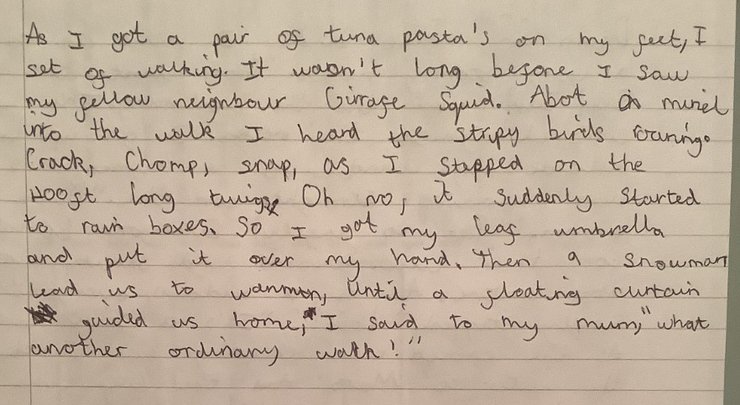 As I got a pair of tuna pasta's on my feet, I
set of walking. It wasn't long before I saw
my fellow neighbour Girrafe Squid. Abot a
into the walk I heard the stripy birds roaring.
Crack, Chomp, snap, as I stapped on the
Hoost long twigs. Oh no, it suddenly started
to rain boxes. So I got my leaf umbrella
and put it over my hand. Then a snowman
lead us to until a floating curtain
guided us home, I said to my mum, "what
another ordinary walk!"